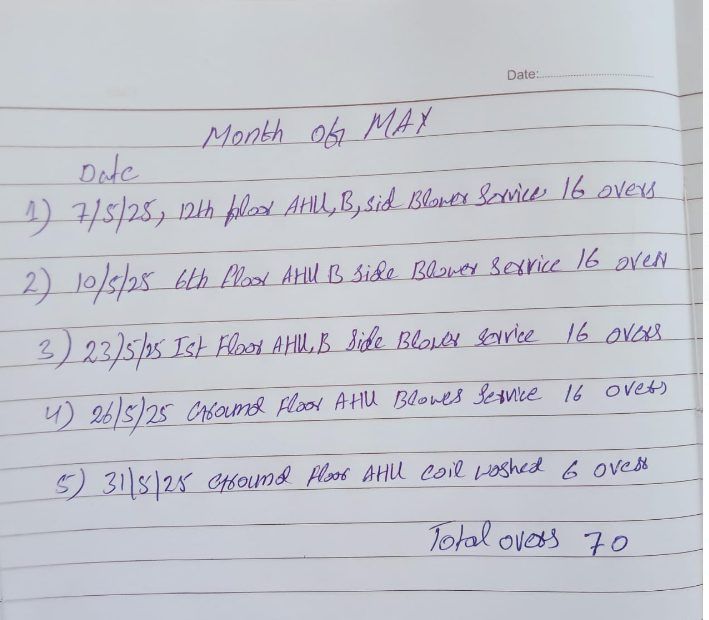 Date:
Month of MAY
Date
1) 7/5/25, 12th floor AHU, B, sid Blower Service 16 overs
2) 10/5/25 6th floor AHU B side Blower service 16 overs
3) 23/5/25 Ist Floor AHU, B Side Blower service 16 overs
4) 26/5/25 Ground Floor AHU Blower Service 16 overs
5) 31/5/25 Ground floor AHU coil washed 6 overs
Total overs 70